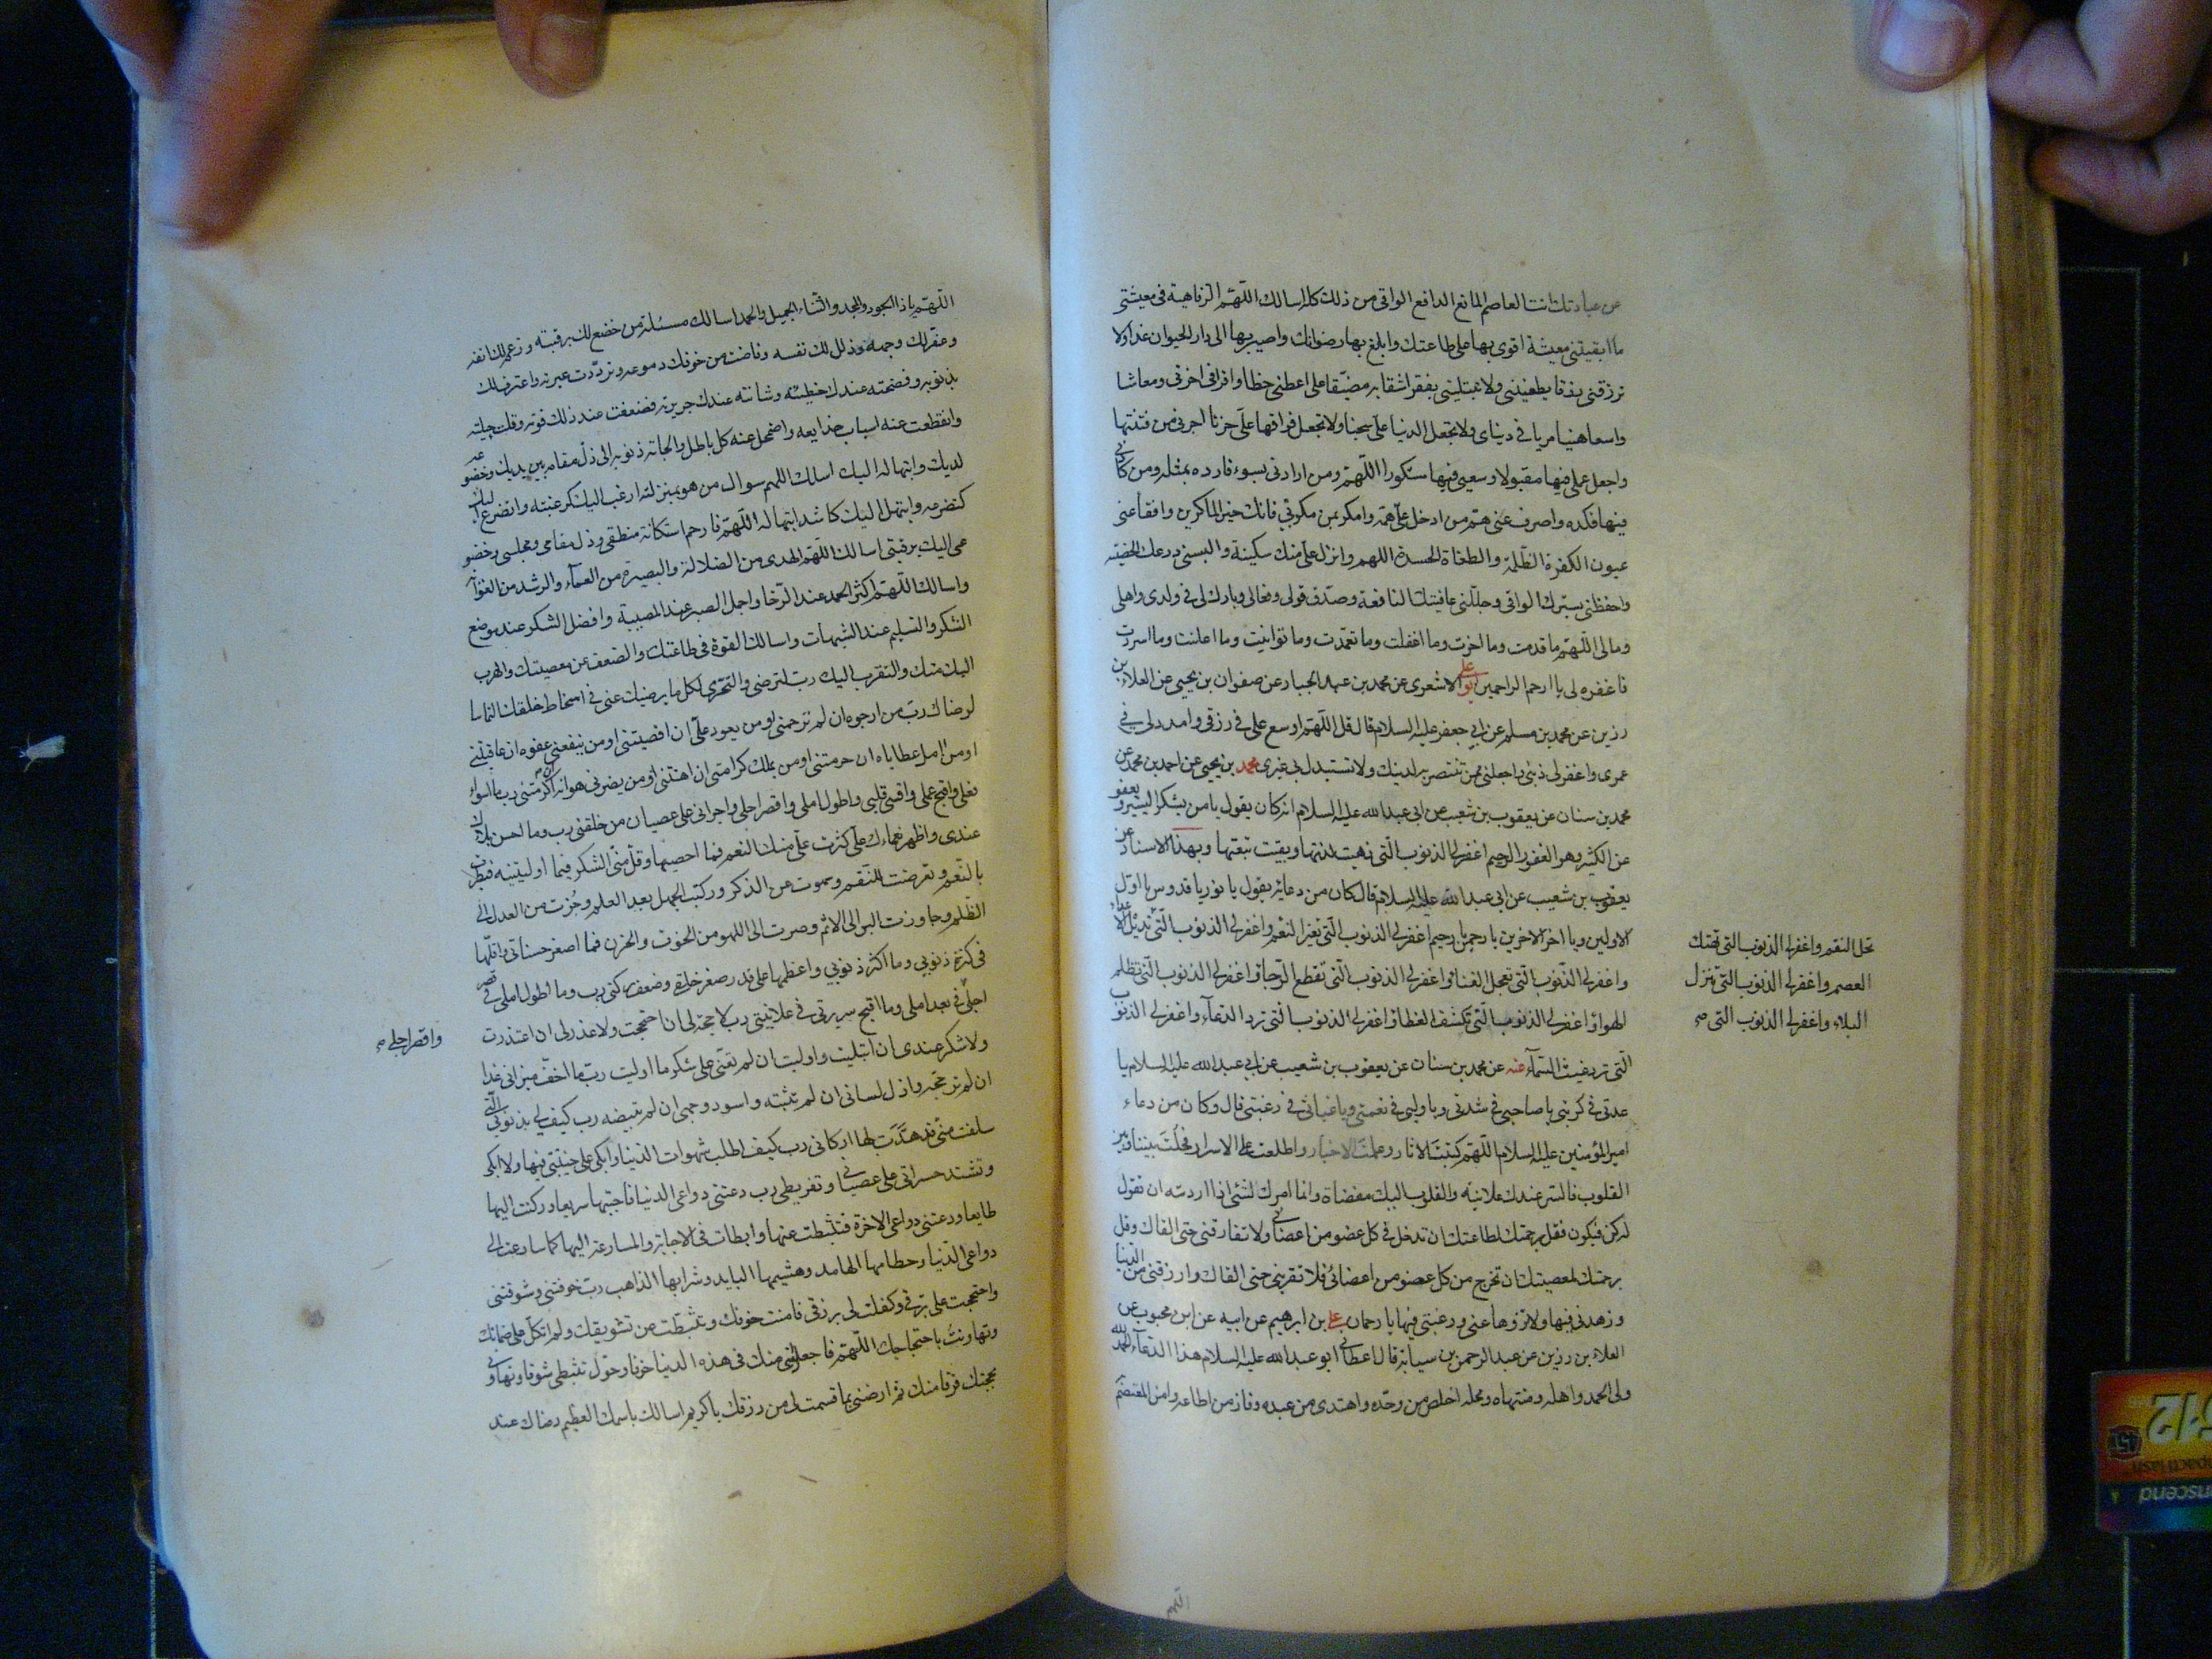 عن عبادتك انت العاصم المانع الدافع الواقى من ذلك كله اسالك اللّهمّ الرّفاهية فى معيشتى
ما ابقيتنى معيشة اقوى بها على طاعتك وابلغ بها رضوانك واصير بها الى دار الحيوان غدا ولا
ترزقنى رزقا يطغينى ولا تبتلينى بفقر اشقا به مضيّقا على اعطنى حظا وافرا فى اخرتى ومعاشا
واسعا هنيا مريا فى دنياى ولا تجعل الدنيا علىّ سجنا ولا تجعل فراقها علىّ حزنا اجرنى من فتنتها
واجعل عملى فيها مقبولا وسعيى فيها مشكورا اللّهمّ ومن ارادنى بسوء فارده بمثله ومن كادنى
فيها فكده واصرف عنى همّ من ادخل علىّ همّه وامكر بمن مكر بى فانك خير الماكرين وافقأ عنى
عيون الكفرة الظّلمة والطغاة الحسدة اللهم وانزل علىّ منك سكينة والبسنى درعك الحصينه
واحفظنى بسترك الواقى وجلّلنى عافيتك النافعة وصدّق قولى وفعالى وبارك لى فى ولدى واهلى
ومالى اللّهمّ ما قدمت وما اخرت وما اغفلت وما تعمّدت وما توانيت وما اعلنت وما اسررت
فاغفره لى يا ارحم الراحمين ابو على الاشعرى عن محمد بن عبد الجبار عن صفوان بن يحيى عن العلاء بن
رزين عن محمد بن مسلم عن ابى جعفر عليه السلام قال قل اللّهمّ اوسع على فى رزقى وامدد لى فى
عمرى واغفر لى ذنبى واجعلنى ممن تنتصر به لدينك ولا تستبدل بى غيرى محمد بن يحيى عن احمد بن محمد عن
محمد بن سنان عن يعقوب بن شعيب عن ابى عبد الله عليه السلام انه كان يقول يا من يشكر اليسير ويعفو
عن الكثير وهو الغفور الرحيم اغفر لى الذنوب التى ذهبت لذتها وبقيت تبعتها وبهذا الاسناد عن
يعقوب بن شعيب عن ابى عبد الله عليه السلام قال كان من دعائه يقول يا نور يا قدوس يا اوّل
الاولين ويا اخر الاخرين يا رحمن يا رحيم اغفر لى الذنوب التى تغير النعم واغفر لى الذنوب التى تديل الاعداء
تحل النقم واغفر لى الذنوب التى تهتك
العصم واغفر لى الذنوب التى تنزل
البلاء واغفر لى الذنوب التى صح
واغفر لى الذنوب التى تعجل الفناء واغفر لى الذنوب التى تقطع الرّجاء واغفر لى الذنوب التى تظلم
الهواء واغفر لى الذنوب التى تكشف الغطاء واغفر لى الذنوب التى ترد الدعاء واغفر لى الذنوب
التى ترد غيث السّماء عنه عن محمد بن سنان عن يعقوب بن شعيب عن ابى عبد الله عليه السلام يا
عدتى فى كربتى يا صاحبى فى شدتى ويا وليى فى نعمتى ويا غياثى فى رغبتى قال وكان من دعاء
امير المؤمنين عليه السلام اللّهمّ كتبت الاثار وعلمت الاخبار واطلعت على الاسرار فحلت بيننا وبين
القلوب فالسر عندك علانية والقلوب اليك مفضاة وانما امرك لشئ اذا اردته ان تقول
له كن فيكون فقل برحمتك لطاعتك ان تدخل فى كل عضو من اعضائى ولا تفارقنى حتى القاك وقل
برحمتك لمعصيتك ان تخرج من كل عضو من اعضائى فلا تقربنى حتى القاك وارزقنى من الدنيا
وزهدنى فيها ولا تزوها عنى ورغبتى فيها يا رحمان على بن ابرهيم عن ابيه عن ابن محبوب عن
العلاء بن رزين عن عبد الرحمن بن سيابة قال اعطانى ابو عبد الله عليه السلام هذا الدعاء الحمد لله
ولى الحمد واهله ومنتهاه ومحله اخلص من وحّده واهتدى من عبده وفاز من اطاعه وامن المعتصم
اللّهم
اللّهمّ يا ذا الجود والمجد والثّناء الجميل والحمد اسالك مسئلة من خضع لك برقبته ورغم لك انفه
وعفّر لك وجهه وذلل لك نفسه وفاضت من خوفك دموعه وتردّدت عبرته واعترف لك
بذنوبه وفضحته عندك خطيئته وشانته عندك جريرته فضعفت عند ذلك قوته وقلت حيلته
وانقطعت عنه اسباب خدايعه واضمحل عنه كل باطل والجاته ذنوبه الى ذل مقامه بين يديك وخضوعه
لديك وابتهاله اليك اسلك اللهم سوال من هو بمنزلته ارغب اليك كرغبته واتضرع اليك
كتضرعه وابتهل اليك كاشد ابتهاله اللّهمّ فارحم استكانة منطقى وذل مقامى ومجلسى وخضو
عى اليك برقبتى اسالك اللّهمّ الهدى من الضلالة والبصيرة من العماء والرشد من الغواية
واسالك اللّهمّ اكثر الحمد عند الرّخا واجمل الصبر عند المصيبة وافضل الشكر عند موضع
الشكر والتسليم عند الشبهات واسالك القوة فى طاعتك والضعف عن معصيتك والهرب
اليك منك والتقرب اليك ربّ لترضى والتّحرّى لكل ما يرضيك عنى فى اسخاط خلقك التماسا
لرضاك ربّ من ارجوه ان لم ترحمنى او من يعود علىّ ان اقصيتنى او من ينفعنى عفوه ان عاقبتنى
او من امل عطاياه ان حرمتنى او من يملك كرامتى ان اهنتنى او من يضرنى هوانه ان اكرمتنى رب ما اسوا
فعلى واقبح عملى واقسى قلبى واطول املى واقصر اجلى واجرانى على عصيان من خلقنى رب وما احسن بلاءك
عندى واظهر نعماءك علىّ كثرت علىّ منك النعم فما احصيها وقل منّى الشكر فيما اوليتنيه فبطرت
بالنّعم وتعرضت للنقم وسهوت عن الذكر وركبت الجهل بعد العلم وجزت من العدل الى
الظّلم وجاوزت البر الى الاثم وصرت الى اللهو من الخوف والحزن فما اصغر حسناتى واقلّها
فى كثرة ذنوبى وما اكثر ذنوبى واعظمها على قدر صغر خلقى وضعف ركنى رب وما اطول املى فى قصر
اجلى فى بعد املى وما اقبح سريرتى فى علانيتى رب لا حجة لى ان احتججت ولا عذر لى ان اعتذرت
واقصر اجلى صح
ولا شكر عندى ان ابتليت واوليت ان لم تعنّى على شكر ما اوليت ربّ ما اخفّ ميزانى غدا
ان لم ترجحه وازل لسانى ان لم تثبته واسود وجهى ان لم تبيضه رب كيف لى بذنوبى التى
سلفت منى قد هدّت لها اركانى رب كيف اطلب شهوات الدنيا وابكى على خيبتى فيها ولا ابكى
وتشتد حسراتى على عصيانى وتفريطى رب دعتنى دواعى الدنيا فاجبتها سريعا وركنت اليها
طايعا ودعتنى دواعى الاخرة فتثبطت عنها وابطات فى الاجابة والمسارعة اليها كما سارعت الى
دواعى الدّنيا وحطامها الهامد وهشيمها البايد وشرابها الذاهب ربّ خوفتنى وشوقتنى
واحتججت على برقى وكفلت لى برزقى فامنت خوفك وتثبطّت عن تشويقك ولم اتكل على ضمانك
وتهاونت باحتجاجك اللّهمّ فاجعل امنى منك فى هذه الدنيا خوفا وحوّل تثبطى شوقا وتهاونى
بحجتك فرقا منك ثم ارضنى بما قسمت لى من رزقك يا كريم اسالك باسمك العظيم رضاك عند